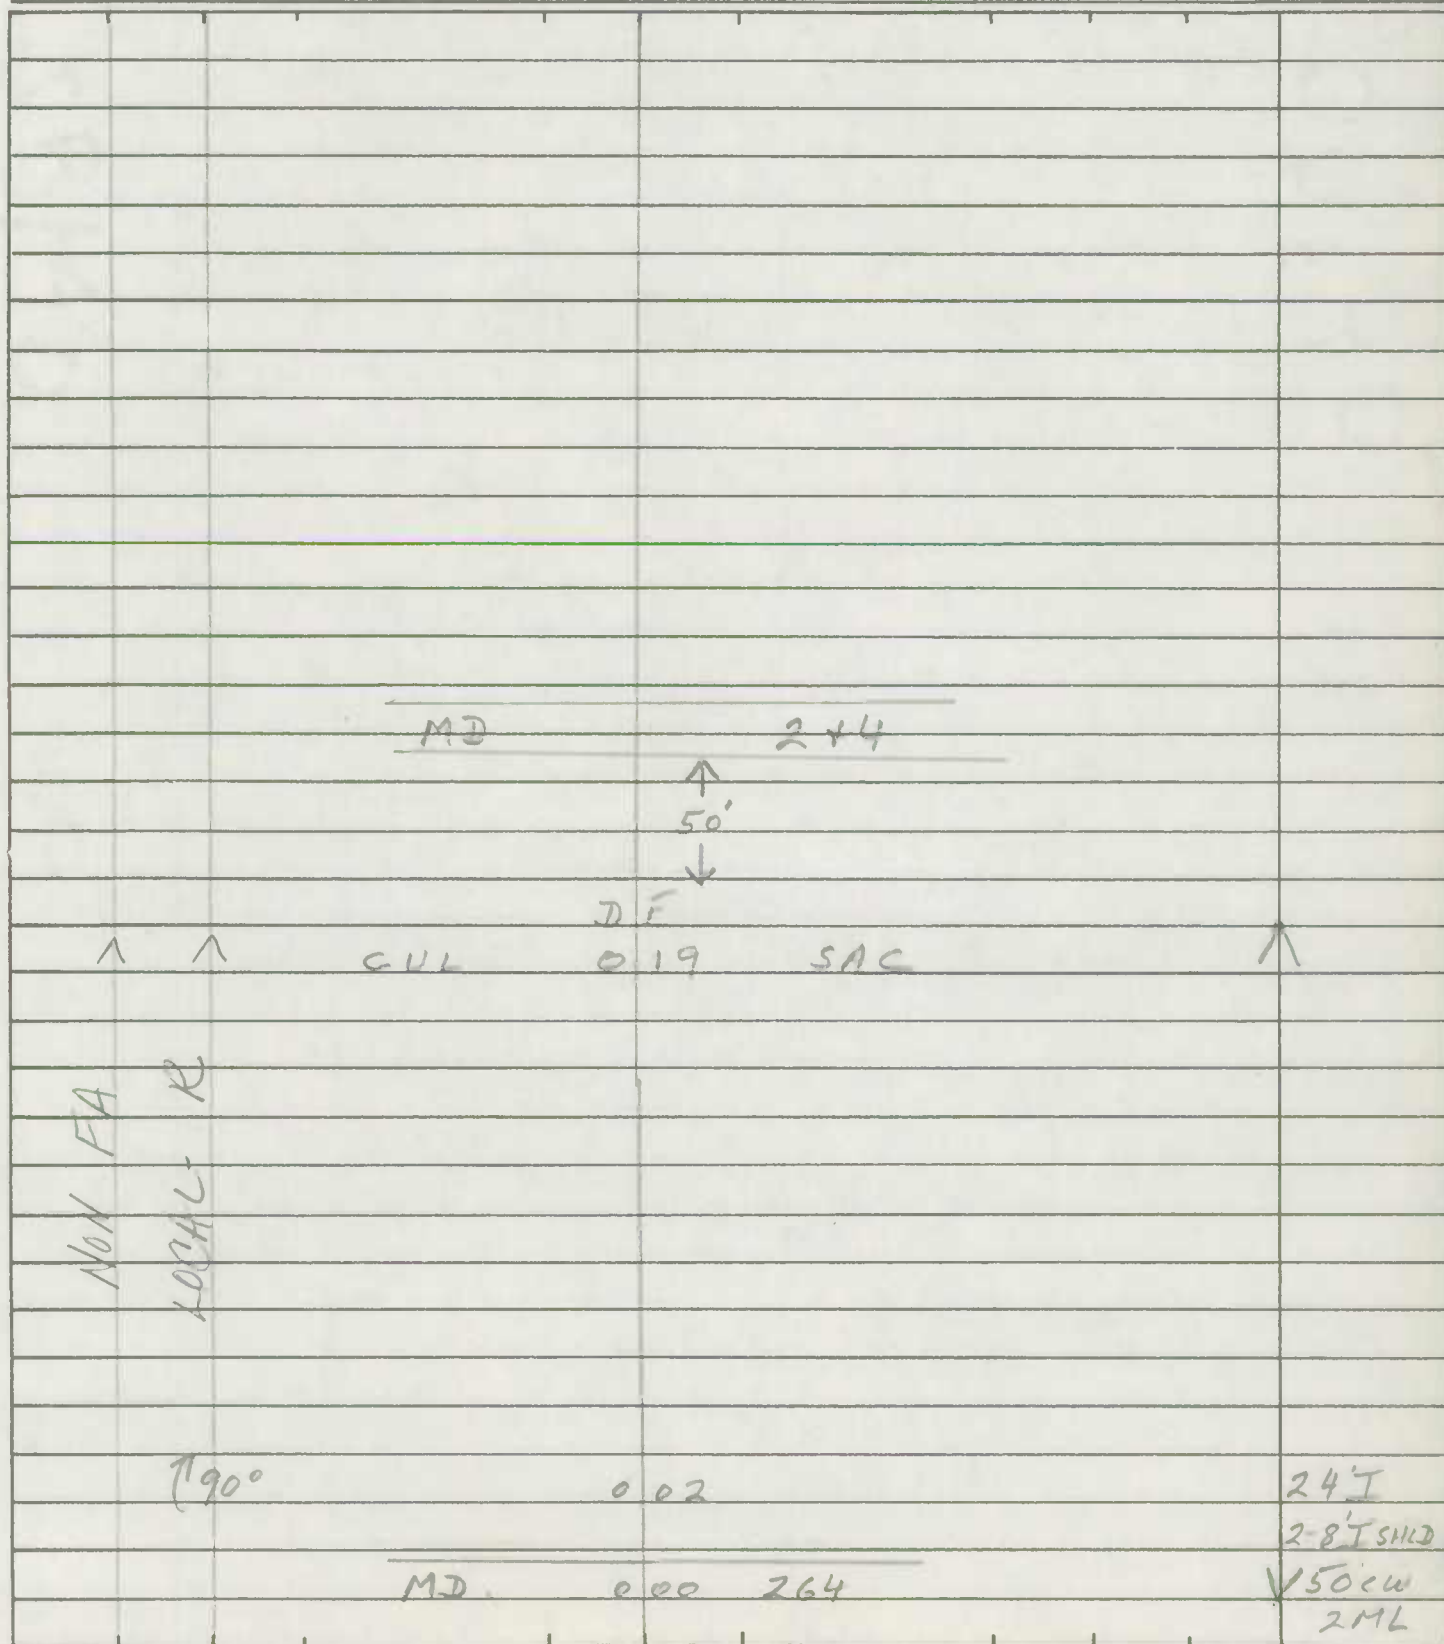 MD 2+4
50'
DF
CUL 0 19 SAC
NON FA
LOCAL- R
90° 0 02 24'I
2-8'I SHLD
MD 0 00 264 50cw
2ML